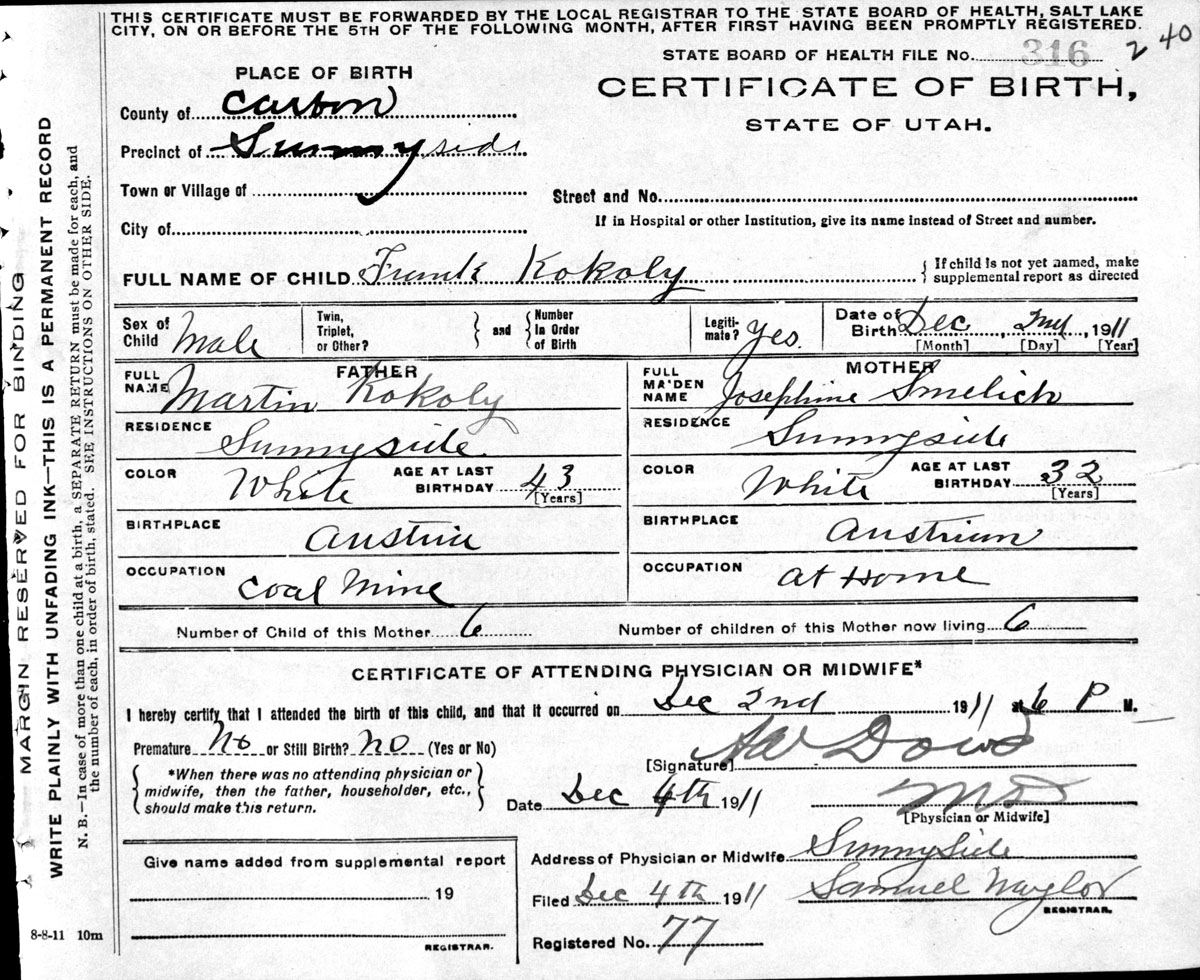 THIS CERTIFICATE MUST BE FORWARDED BY THE LOCAL REGISTRAR TO THE STATE BOARD OF HEALTH, SALT LAKE
CITY, ON OR BEFORE THE 5TH OF THE FOLLOWING MONTH, AFTER FIRST HAVING BEEN PROMPTLY REGISTERED.
STATE BOARD OF HEALTH FILE No. 316 240
PLACE OF BIRTH
CERTIFICATE OF BIRTH,
STATE OF UTAH.
County of Carbon
Precinct of Sunnyside
Town or Village of
Street and No.
City of
If in Hospital or other Institution, give its name instead of Street and number.
FULL NAME OF CHILD Frank Kokoly { If child is not yet named, make
supplemental report as directed
Sex of Child Male
Twin, Triplet, or Other? } and { Number in Order of Birth
Legiti-mate? Yes.
Date of Birth Dec, 2nd, 1911
[Month] [Day] [Year]
FATHER
FULL NAME Martin Kokoly
MOTHER
FULL MAIDEN NAME Josephine Smelich
RESIDENCE Sunnyside
RESIDENCE Sunnyside
COLOR White AGE AT LAST BIRTHDAY 43 [Years]
COLOR White AGE AT LAST BIRTHDAY 32 [Years]
BIRTHPLACE Austria
BIRTHPLACE Austrian
OCCUPATION Coal Mine
OCCUPATION At Home
Number of Child of this Mother 6 Number of children of this Mother now living 6
CERTIFICATE OF ATTENDING PHYSICIAN OR MIDWIFE*
I hereby certify that I attended the birth of this child, and that it occurred on Dec 2nd 1911 at 6 P M.
Premature No or Still Birth? No (Yes or No)
[Signature] Dowd
{ *When there was no attending physician or
midwife, then the father, householder, etc.,
should make this return. }
Date Dec 4th 1911 MD
[Physician or Midwife]
Give name added from supplemental report
19
REGISTRAR.
Address of Physician or Midwife Sunnyside
Filed Dec 4th 1911 Samuel Naylor
REGISTRAR.
Registered No. 77
8-8-11 10m
MARGIN RESERVED FOR BINDING
WRITE PLAINLY WITH UNFADING INK—THIS IS A PERMANENT RECORD
N. B.—In case of more than one child at a birth, a SEPARATE RETURN must be made for each, and
the number of each, in order of birth, stated. SEE INSTRUCTIONS ON OTHER SIDE.